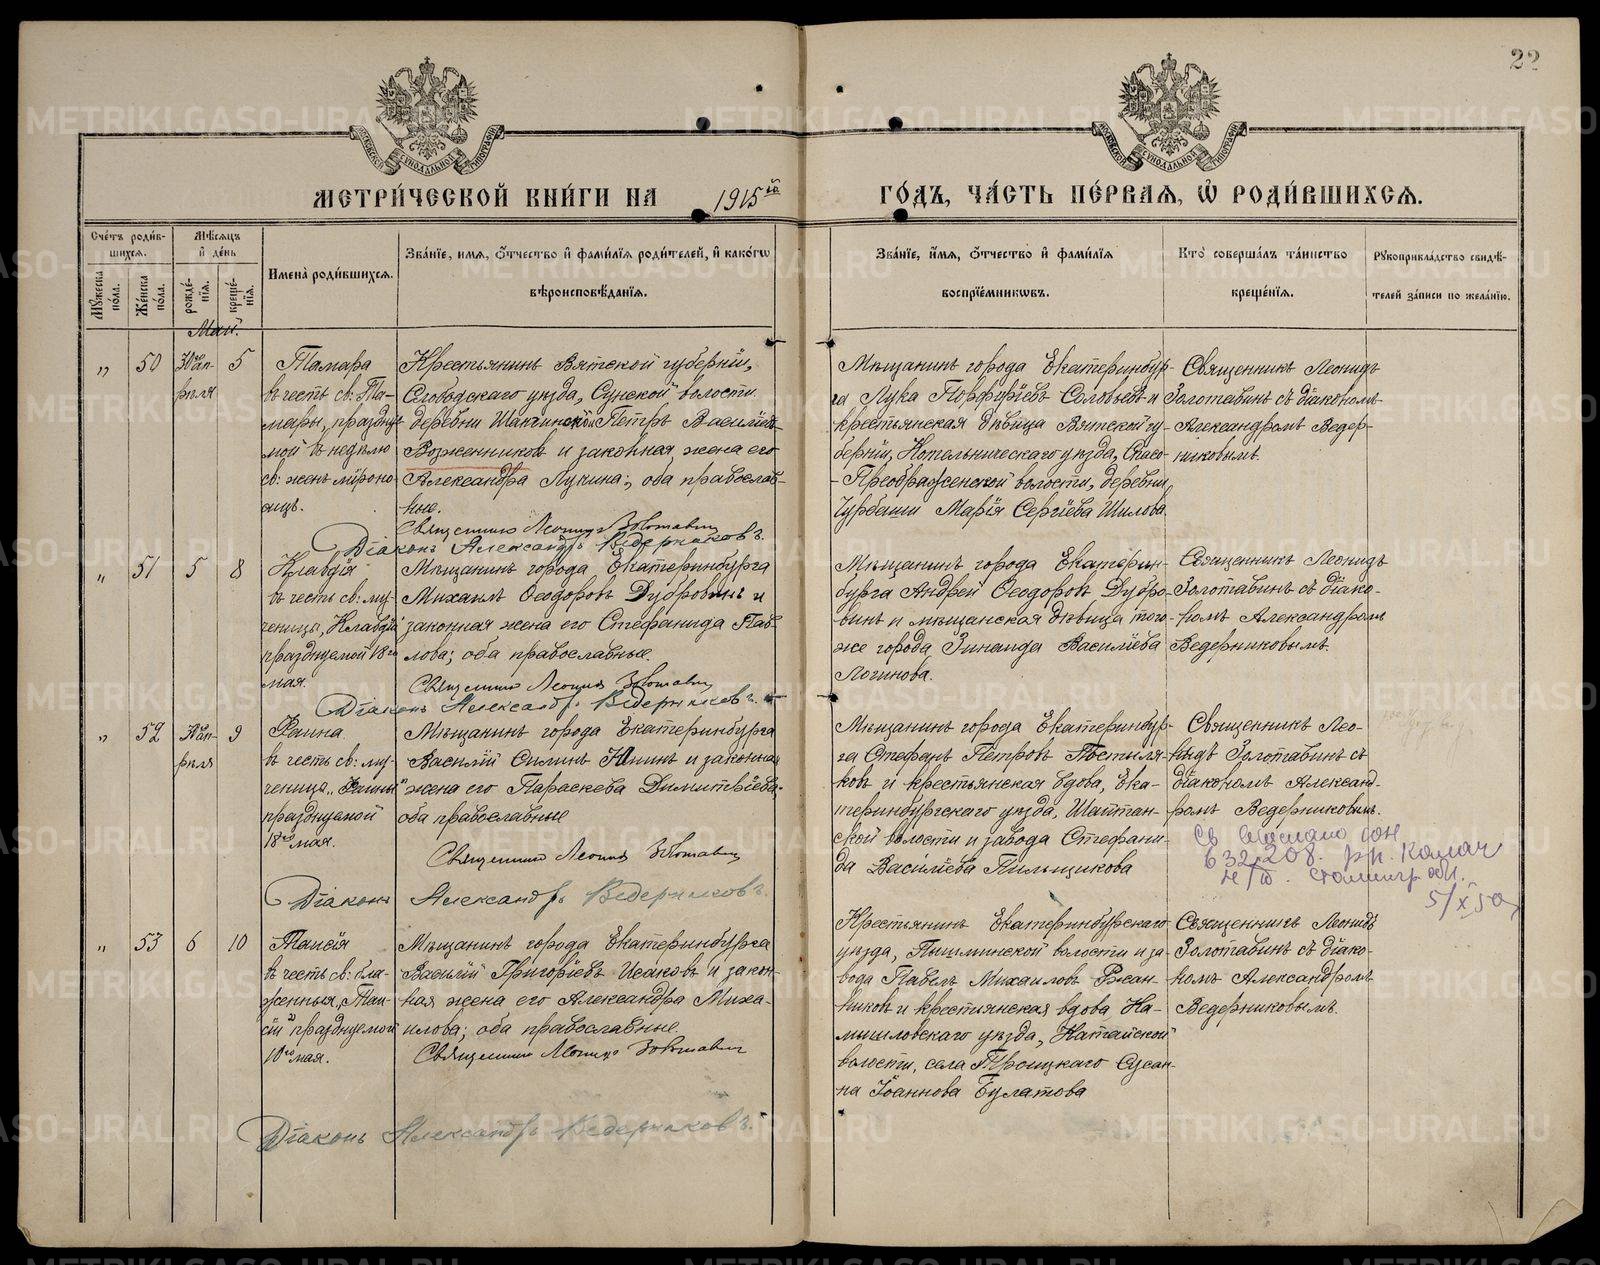 22
МЕТРИ́ЧЕСКОЙ КНИ́ГИ НА 1915й
ГО́ДЪ, ЧА́СТЬ ПЕ́РВАЯ, Ѡ҆ РОДИ́ВШИХСЯ.
Сче́тъ роди́в-
шихся.
Му́жеска по́ла.
Же́нска по́ла.
Мѣ́сяцъ
и҆ де́нь
рожде́-
нїя.
креще́-
нїя.
Имена̀ роди́вшихся.
Зва́нїе, имя, о҆́тчество и҆ фами́лїя роди́телей, и҆ како́гѡ
вѣроисповѣ́данїя.
Зва́нїе, и҆́мя, о҆́тчество и҆ фами́лїя
воспрїе́мникωвъ.
Кто̀ соверша́лъ та́инство
креще́нїя.
Рукоприкла́дство свидѣ́-
телей за́писи по жела́нїю.
Май.
„ 50 30го Ап-
рѣля 5
Тамара
въ честь св. Та-
мары, праздну-
мой въ недѣлю
св. женъ мѵроно-
сицъ.
Крестьянинъ Вятской губерніи,
Слободскаго уѣзда, Сунской волости
деревни Петръ Васильевъ
Воженниковъ и законная жена его
Александра Лукина; оба православ-
ные.
Священникъ Леонидъ Золотавинъ
Діаконъ Александръ Ведерниковъ.
Мѣщанинъ города Екатеринбур-
га Лука Порфиріевъ Соловьевъ и
крестьянская дѣвица Вятской гу-
берніи, Котельническаго уѣзда, Спасо-
-Преображенской волости, деревни
Чурбаши Марія Сергіева Шилова.
Священникъ Леонидъ
Золотавинъ съ діакономъ
Александромъ Ведер-
никовымъ.
„ 51 5 8
Клавдія
въ честь св. му-
ченицы, Клавдіи
празднуемой 18го
мая.
Мѣщанинъ города Екатеринбурга
Михаилъ Ѳеодоровъ Дубровинъ и
законная жена его Стефанида Пав-
лова; оба православные.
Священникъ Леонидъ Золотавинъ
Діаконъ Александръ Ведерниковъ.
Мѣщанинъ города Екатерин-
бурга Андрей Ѳеодоровъ Дубро-
винъ и мѣщанская дѣвица того-
же города Зинаида Васильева
Логинова.
Священникъ Леонидъ
Золотавинъ съ діако-
номъ Александромъ
Ведерниковымъ.
„ 52 30го Ап-
рѣля 9
Фаина
въ честь св. му-
ченицы „Фаины“
празднуемой
18го мая.
Мѣщанинъ города Екатеринбурга
Василій Силинъ Юнинъ и законная
жена его Параскева Димитріева;
оба православные
Священникъ Леонидъ Золотавинъ
Діаконъ Александръ Ведерниковъ.
Мѣщанинъ города Екатеринбур-
га Стефанъ Петровъ Постыля-
ковъ и крестьянская вдова, Ека-
теринбургскаго уѣзда, Шайтан-
ской волости и завода Стефани-
да Васильева Пильщикова
Священникъ Лео-
нидъ Золотавинъ съ
діакономъ Александ-
ромъ Ведерниковымъ.
632208. рп. Калач
Сталингр обл.
5/X 50
„ 53 6 10
Таисія
въ честь св. бла-
женныя, Таи-
сіи празднуемой
10го мая.
Мѣщанинъ города Екатеринбурга
Василій Григорьевъ Исаковъ и закон-
ная жена его Александра Миха-
илова; оба православные.
Священникъ Леонидъ Золотавинъ
Діаконъ Александръ Ведерниковъ.
Крестьянинъ Екатеринбургскаго
уѣзда, Пышминской волости и за-
вода Павелъ Михаиловъ Ржан-
никовъ и крестьянская вдова, Ка-
мышловскаго уѣзда, Катайской
волости, села Троицкаго Сусан-
на Іоаннова Булатова
Священникъ Леонидъ
Золотавинъ съ діако-
номъ Александромъ
Ведерниковымъ.
METRIKI.GASO-URAL.RU